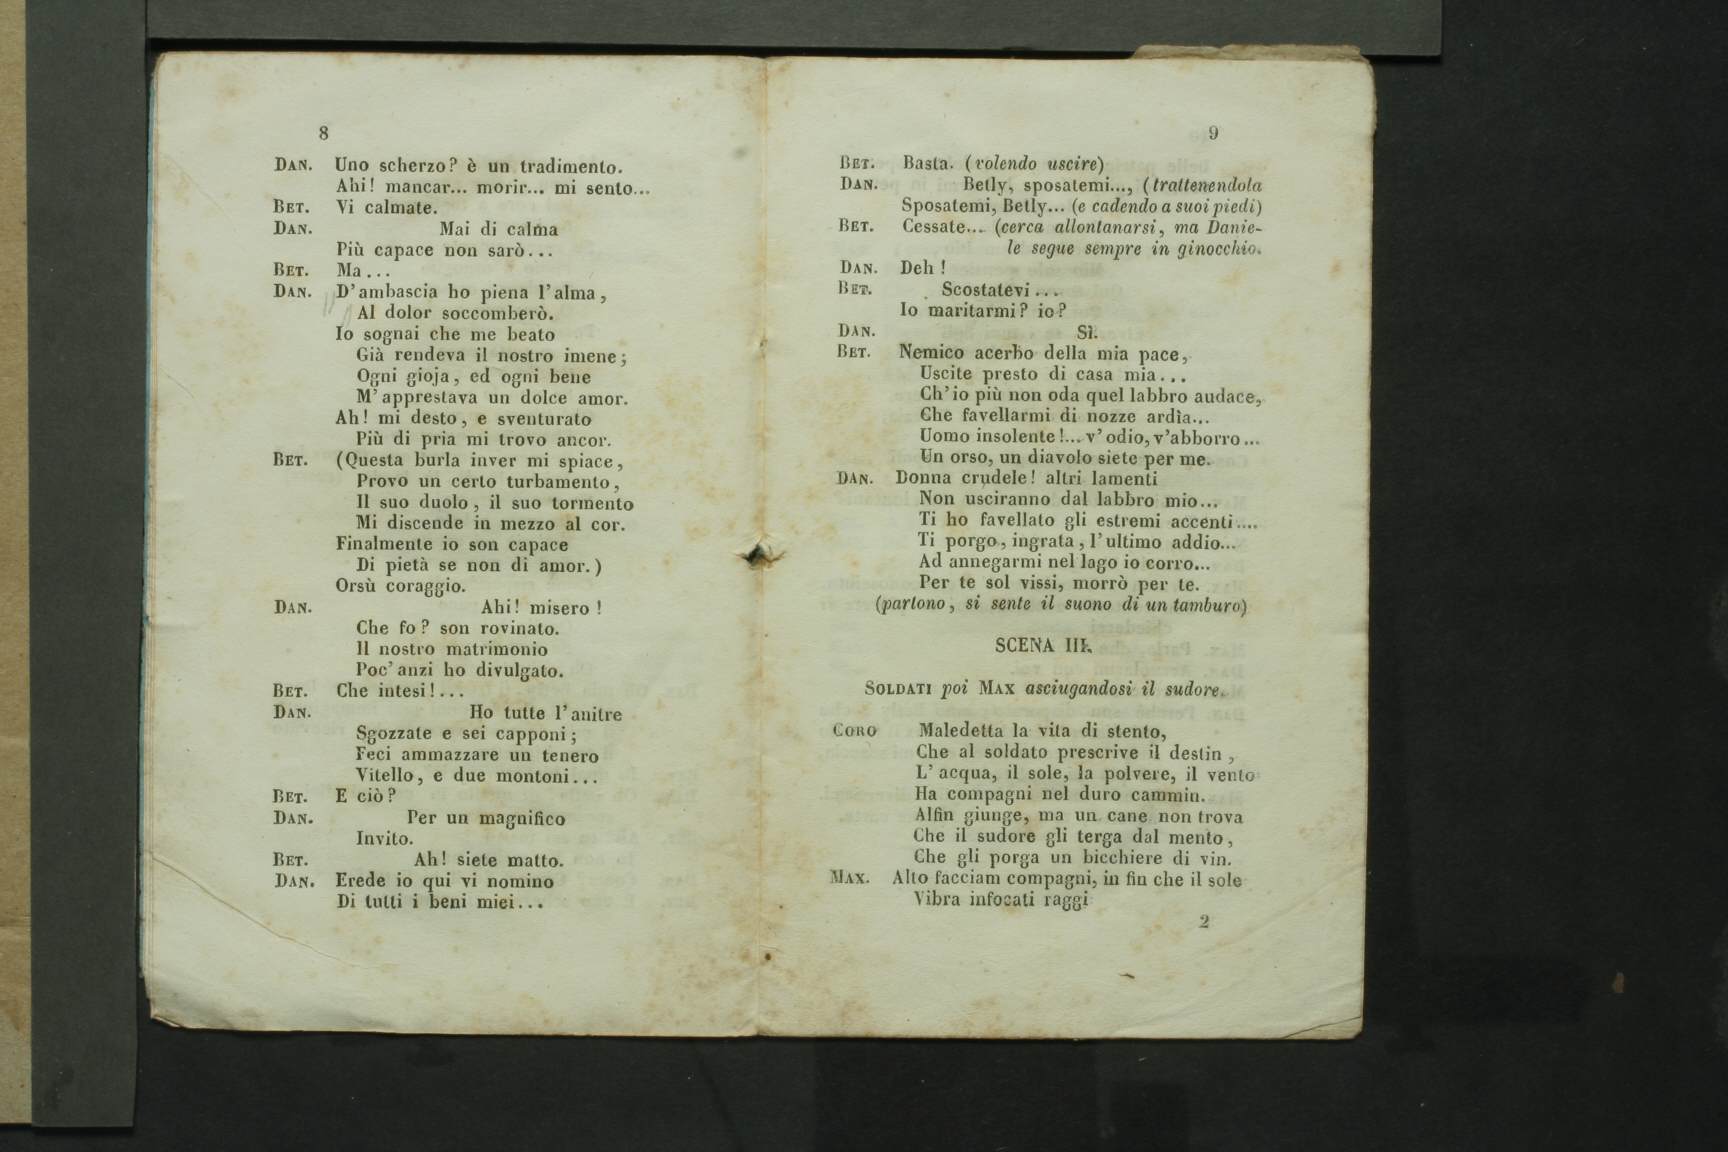 8
DAN. Uno scherzo? è un tradimento.
Ahi! mancar... morir... mi sento...
BET. Vi calmate.
DAN. Mai di calma
Più capace non sarò...
BET. Ma...
DAN. D'ambascia ho piena l'alma,
Al dolor soccomberò.
Io sognai che me beato
Già rendeva il nostro imene;
Ogni gioja, ed ogni bene
M'apprestava un dolce amor.
Ah! mi desto, e sventurato
Più di pria mi trovo ancor.
BET. (Questa burla inver mi spiace,
Provo un certo turbamento,
Il suo duolo, il suo tormento
Mi discende in mezzo al cor.
Finalmente io son capace
Di pietà se non di amor.)
Orsù coraggio.
DAN. Ahi! misero!
Che fo? son rovinato.
Il nostro matrimonio
Poc'anzi ho divulgato.
BET. Che intesi!...
DAN. Ho tutte l'anitre
Sgozzate e sei capponi;
Feci ammazzare un tenero
Vitello, e due montoni...
BET. E ciò?
DAN. Per un magnifico
Invito.
BET. Ah! siete matto.
DAN. Erede io qui vi nomino
Di tutti i beni miei...
9
BET. Basta. (volendo uscire)
DAN. Betly, sposatemi..., (trattenendola
Sposatemi, Betly... (e cadendo a suoi piedi)
BET. Cessate... (cerca allontanarsi, ma Danie-
le segue sempre in ginocchio.
DAN. Deh!
BET. Scostatevi...
Io maritarmi? io?
DAN. Sì.
BET. Nemico acerbo della mia pace,
Uscite presto di casa mia...
Ch'io più non oda quel labbro audace,
Che favellarmi di nozze ardìa...
Uomo insolente!... v'odio, v'abborro...
Un orso, un diavolo siete per me.
DAN. Donna crudele! altri lamenti
Non usciranno dal labbro mio...
Ti ho favellato gli estremi accenti....
Ti porgo, ingrata, l'ultimo addio...
Ad annegarmi nel lago io corro...
Per te sol vissi, morrò per te.
(partono, si sente il suono di un tamburo)
SCENA III.
SOLDATI poi MAX asciugandosi il sudore.
CORO Maledetta la vita di stento,
Che al soldato prescrive il destin,
L'acqua, il sole, la polvere, il vento
Ha compagni nel duro cammin.
Alfin giunge, ma un cane non trova
Che il sudore gli terga dal mento,
Che gli porga un bicchiere di vin.
MAX. Alto facciam compagni, in fin che il sole
Vibra infocati raggi
2